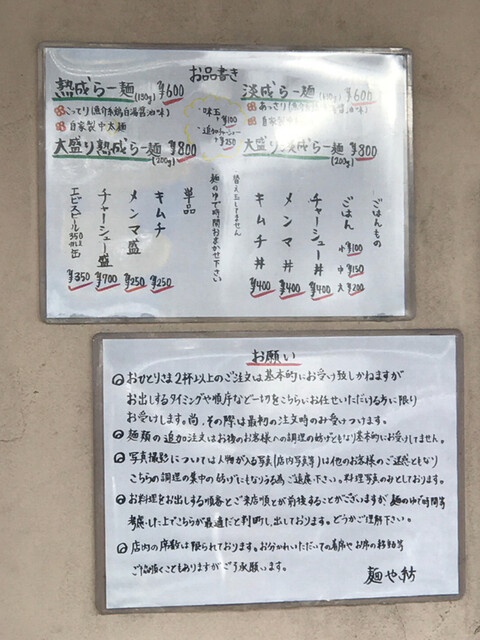 お品書き
熟成らー麺(130g) ¥600
こってり(魚介系鶏白湯醤油味)
自家製中太麺
大盛り熟成らー麺 ¥800
(200g)
味玉 ¥100
追加チャーシュー ¥250
淡成らー麺 ¥600
あっさり
自家製
大盛り淡成らー麺 ¥800
(200g)
ごはんもの
ごはん 小¥100
中¥150
大¥200
チャーシュー丼 ¥400
メンマ丼 ¥400
キムチ丼 ¥400
替え玉してません
麺のゆで時間おまかせ下さい
単品
キムチ ¥250
メンマ盛 ¥250
チャーシュー盛 ¥700
エビスビール350ml缶 ¥350
お願い
おひとりさま2杯以上のご注文は基本的にお受け致しかねますが
お出しするタイミングや順序など一切をこちらにお任せいただける方に限り
お受けします。尚、その際は最初の注文時のみお受けつけます。
麺類の追加注文はお後のお客様への調理の妨げともなり基本的にお受けしてません。
写真撮影については人物が入る写真(店内写真等)は他のお客様のご迷惑ともなり
こちらの調理の集中の妨げにもなりする為ご遠慮下さい。料理写真のみとしております。
お料理をお出しする順番とご来店順とが前後することがございますが、麺のゆで時間等
考慮した上でこちらが最適だと判断し、出しております。どうかご理解下さい。
店内の席数は限られております。お分かれいただいての着席やお席の移動等
ご協力頂くこともありますがご了承願います。
麺や